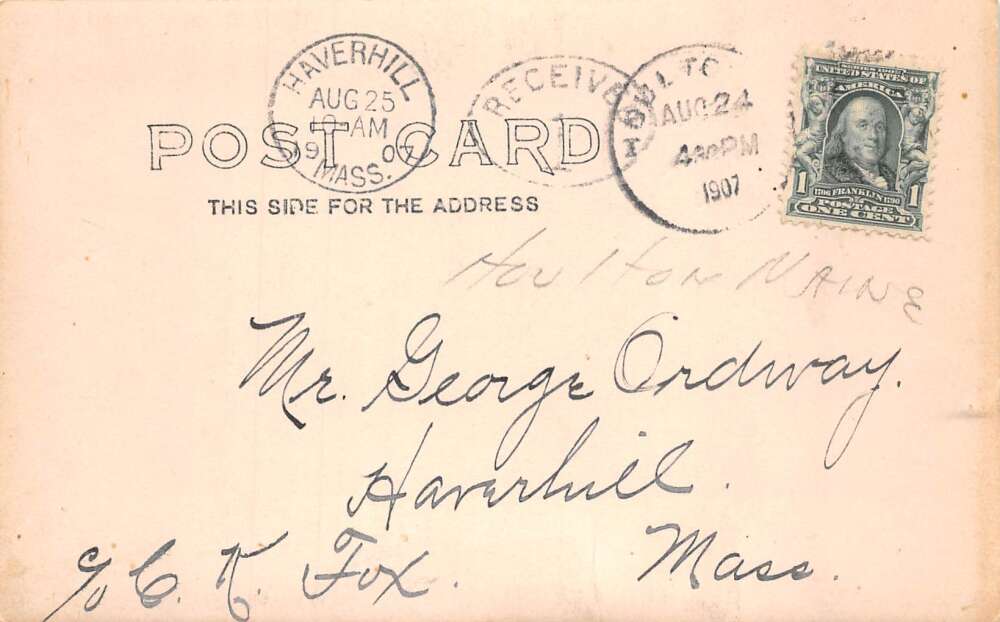 HAVERHILL
AUG 25
10-AM
1907
MASS.
RECEIVE
1
HOULTO
AUG 24
4 PM
1907
SERIES 1902
UNITED STATES OF
AMERICA
1706 FRANKLIN 1790
1 POSTAGE 1
ONE CENT
POST CARD
THIS SIDE FOR THE ADDRESS
Houlton MAINE
Mr. George Ordway.
Haverhill.
Mass.
c/o C. K. Fox.